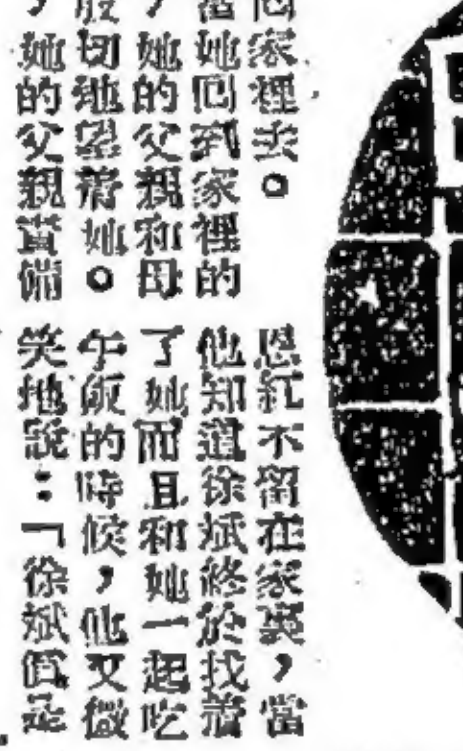 回家裡去。
着她回到家裡的
，她的父親和母
殷切地望着她。
，她的父親責備
恩紅不留在家裏，當
他知道徐斌終於找着
了她而且和她一起吃
午飯的時候，他又微
笑地說：「徐斌眞是